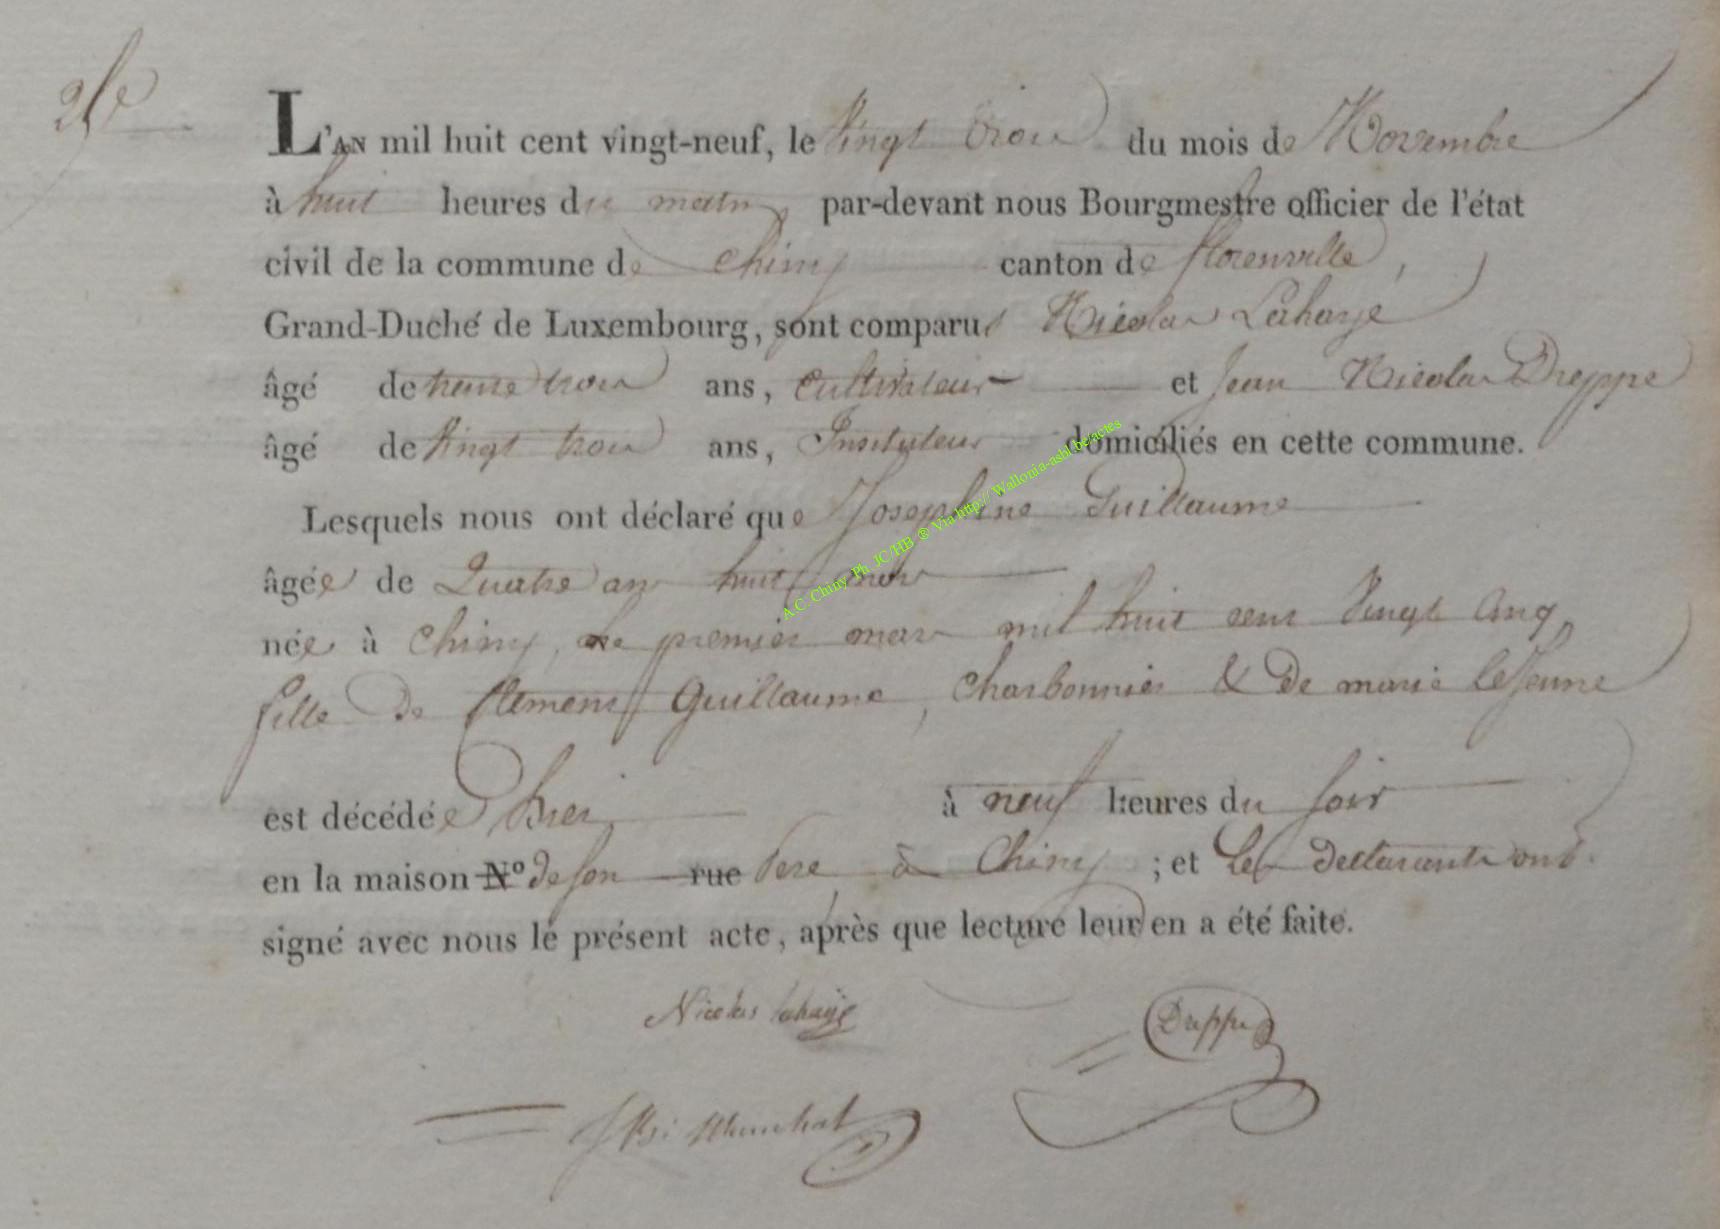 L'AN mil huit cent vingt-neuf, le Vingt trois du mois de Novembre
à huit heures du matin par-devant nous Bourgmestre officier de l'état
civil de la commune de Chiny canton de florenville,
Grand-Duché de Luxembourg, sont comparus Nicolas Lahaye
âgé de trente trois ans, Cultivateur et Jean Nicolas Dreppe
âgé de Vingt trois ans, Instituteur domiciliés en cette commune.
Lesquels nous ont déclaré que Josephine Guillaume
âgée de Quatre ans huit mois
née à Chiny, le premier mars mil huit cent Vingt Cinq,
fille de Clement Guillaume, Charbonnier & De marie LeJeune
est décédée hier à neuf heures du soir
en la maison N° de son rue Pere à Chiny ; et Les declarants ont
signé avec nous le présent acte, après que lecture leur en a été faite.
Nicolas lahaÿe
Dreppe
A.C. Chiny Ph JC/HB ® Via http:// Wallonia-asbl.be/actes